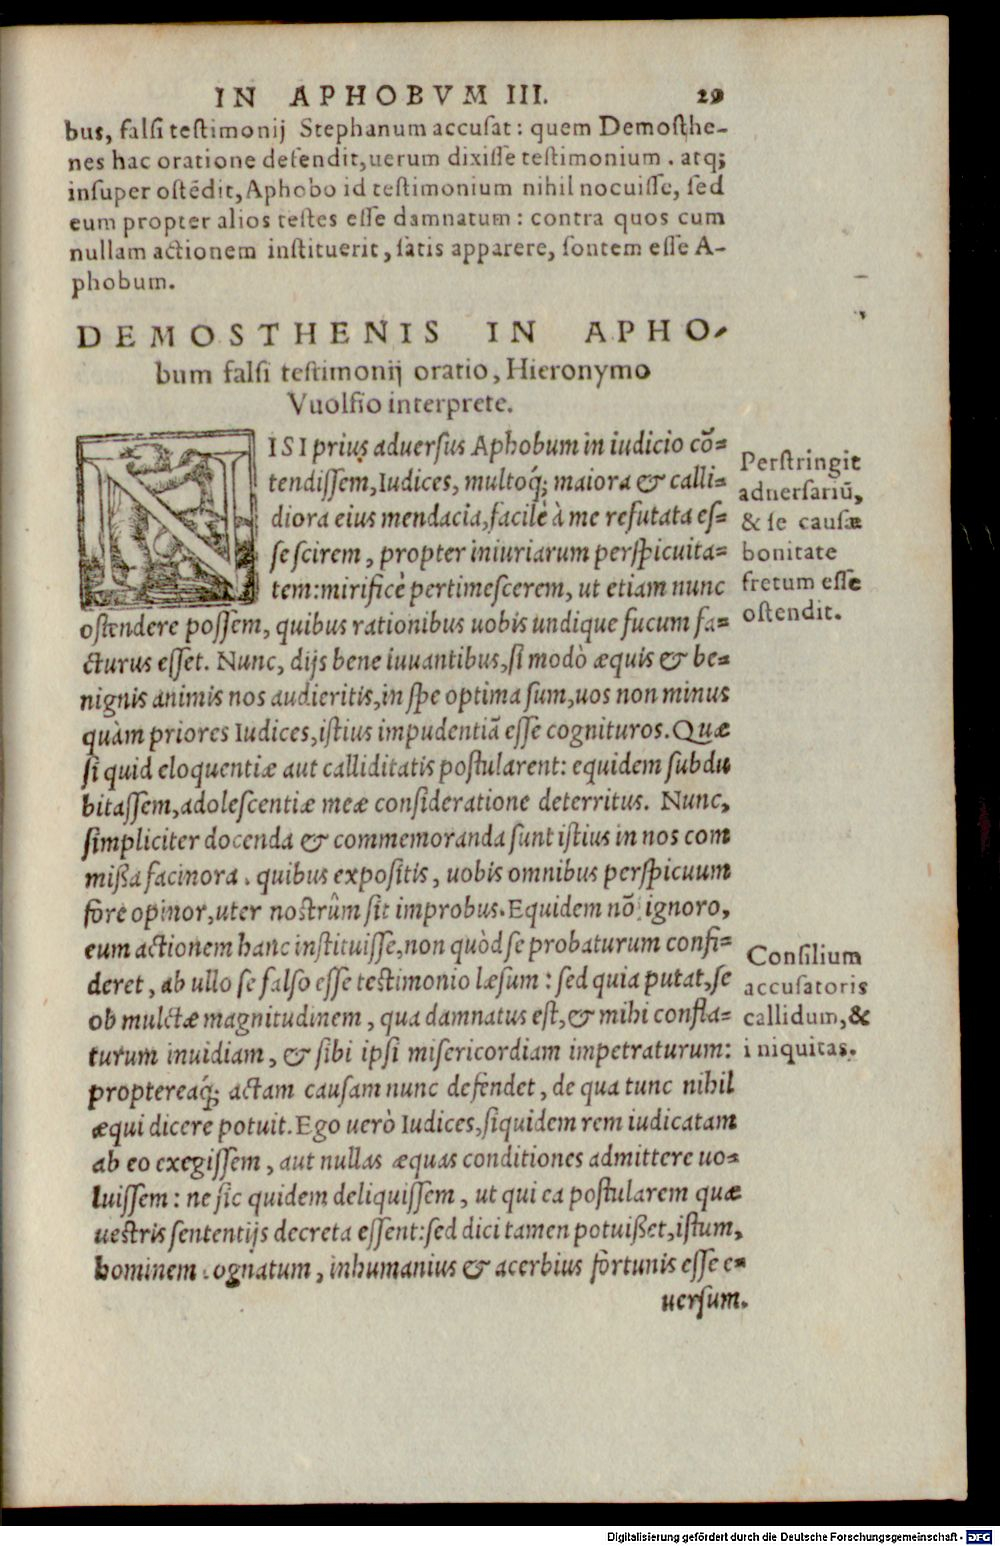 IN APHOBVM III. 29
bus, falſi teſtimonij Stephanum accuſat: quem Demoſthe-
nes hac oratione defendit, uerum dixiſſe teſtimonium. atq;
inſuper oſtēdit, Aphobo id teſtimonium nihil nocuiſſe, ſed
eum propter alios teſtes eſſe damnatum: contra quos cum
nullam actionem inſtituerit, ſatis apparere, ſontem eſſe A-
phobum.
DEMOSTHENIS IN APHO-
bum falſi teſtimonij oratio, Hieronymo
Vuolfio interprete.
NISI prius aduerſus Aphobum in iudicio cō-
tendiſſem, Iudices, multoq́; maiora & calli-
diora eius mendacia, facilè à me refutata eſ-
ſe ſcirem, propter iniuriarum perſpicuita-
tem: mirificè pertimeſcerem, ut etiam nunc
oſtendere poſſem, quibus rationibus uobis undique fucum fa-
cturus eſſet. Nunc, dijs bene iuuantibus, ſi modò æquis & be-
nignis animis nos audieritis, in ſpe optima ſum, uos non minus
quàm priores Iudices, iſtius impudentiā eſſe cognituros. Quæ
ſi quid eloquentiæ aut calliditatis poſtularent: equidem ſubdu
bitaſſem, adoleſcentiæ meæ conſideratione deterritus. Nunc,
ſimpliciter docenda & commemoranda ſunt iſtius in nos com
mißa facinora. quibus expoſitis, uobis omnibus perſpicuum
fore opinor, uter noſtrûm ſit improbus. Equidem nō ignoro,
eum actionem hanc inſtituiſſe, non quòd ſe probaturum confi-
deret, ab ullo ſe falſo eſſe teſtimonio læſum: ſed quia putat, ſe
ob mulctæ magnitudinem, qua damnatus eſt, & mihi confla-
turum inuidiam, & ſibi ipſi miſericordiam impetraturum:
proptereaq́; actam cauſam nunc defendet, de qua tunc nihil
æqui dicere potuit. Ego uerò Iudices, ſiquidem rem iudicatam
ab eo exegiſſem, aut nullas æquas conditiones admittere uo-
luiſſem: ne ſic quidem deliquiſſem, ut qui ea poſtularem quæ
ueſtris ſententijs decreta eſſent: ſed dici tamen potuißet, iſtum,
hominem cognatum, inhumanius & acerbius fortunis eſſe e-
uerſum.
Perſtringit
aduerſariū,
& ſe cauſæ
bonitate
fretum eſſe
oſtendit.
Conſilium
accuſatoris
callidum, &
iniquitas.
Digitalisierung gefördert durch die Deutsche Forschungsgemeinschaft - DFG